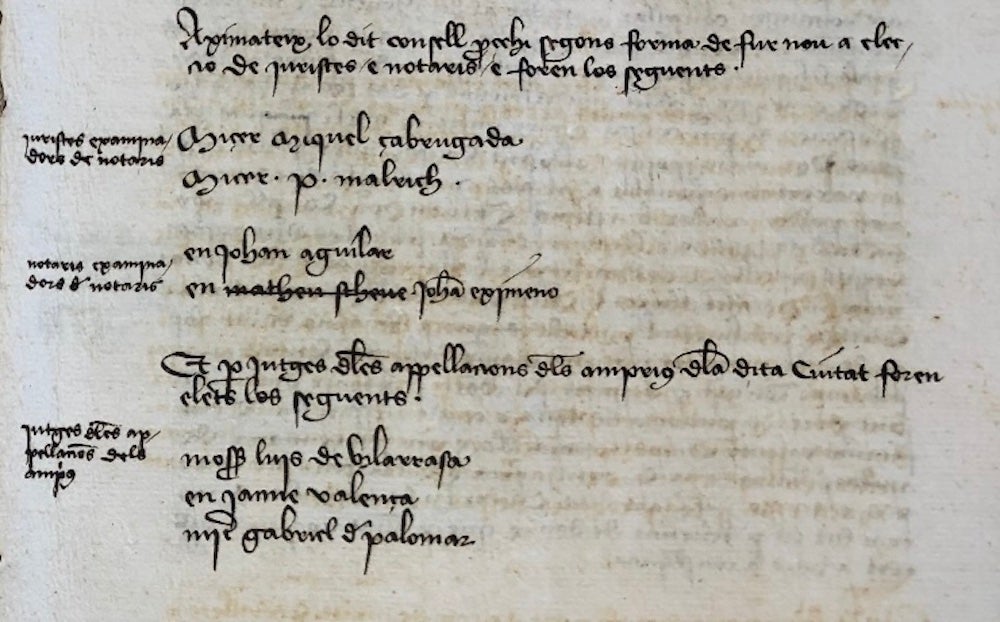 Aximateix lo dit consell procehi segons forma de fur nou a elec-
cio de juristes e notaris e foren los seguents.
juristes examina-
dors de notaris
Micer Miquel çabrugada
Micer . p . malrich .
notaris examina-
dors d notaris
en Johan aguilar
en matheu stheue Joha eximeno
Et p Jutges dles appellacions dls amprius dla dita Ciutat foren
elets los seguents .
jutges dles ap-
pellacios dels
amprius
moss luis de vilarrasa
en Jaume valença
micer gabriel d palomar